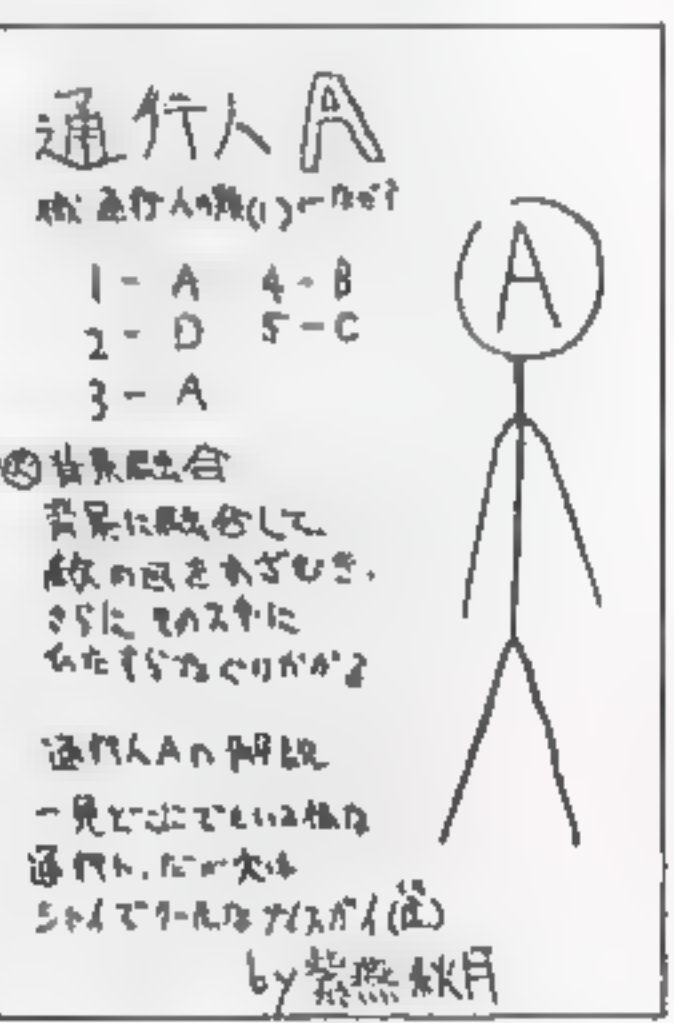 通行人A
通行人の類(1)←なぜ?
1 - A 4 - B
2 - D 5 - C
3 - A
背景融合
背景に融合して、
敵の目をあざむき、
さらにそのスキに
ひたすらなぐりかかる
通行人Aの解説
一見どこにでもいる様な
通行人、だが実は
シャイでクールなナイスガイ(仮)
by 紫燕秋月
A